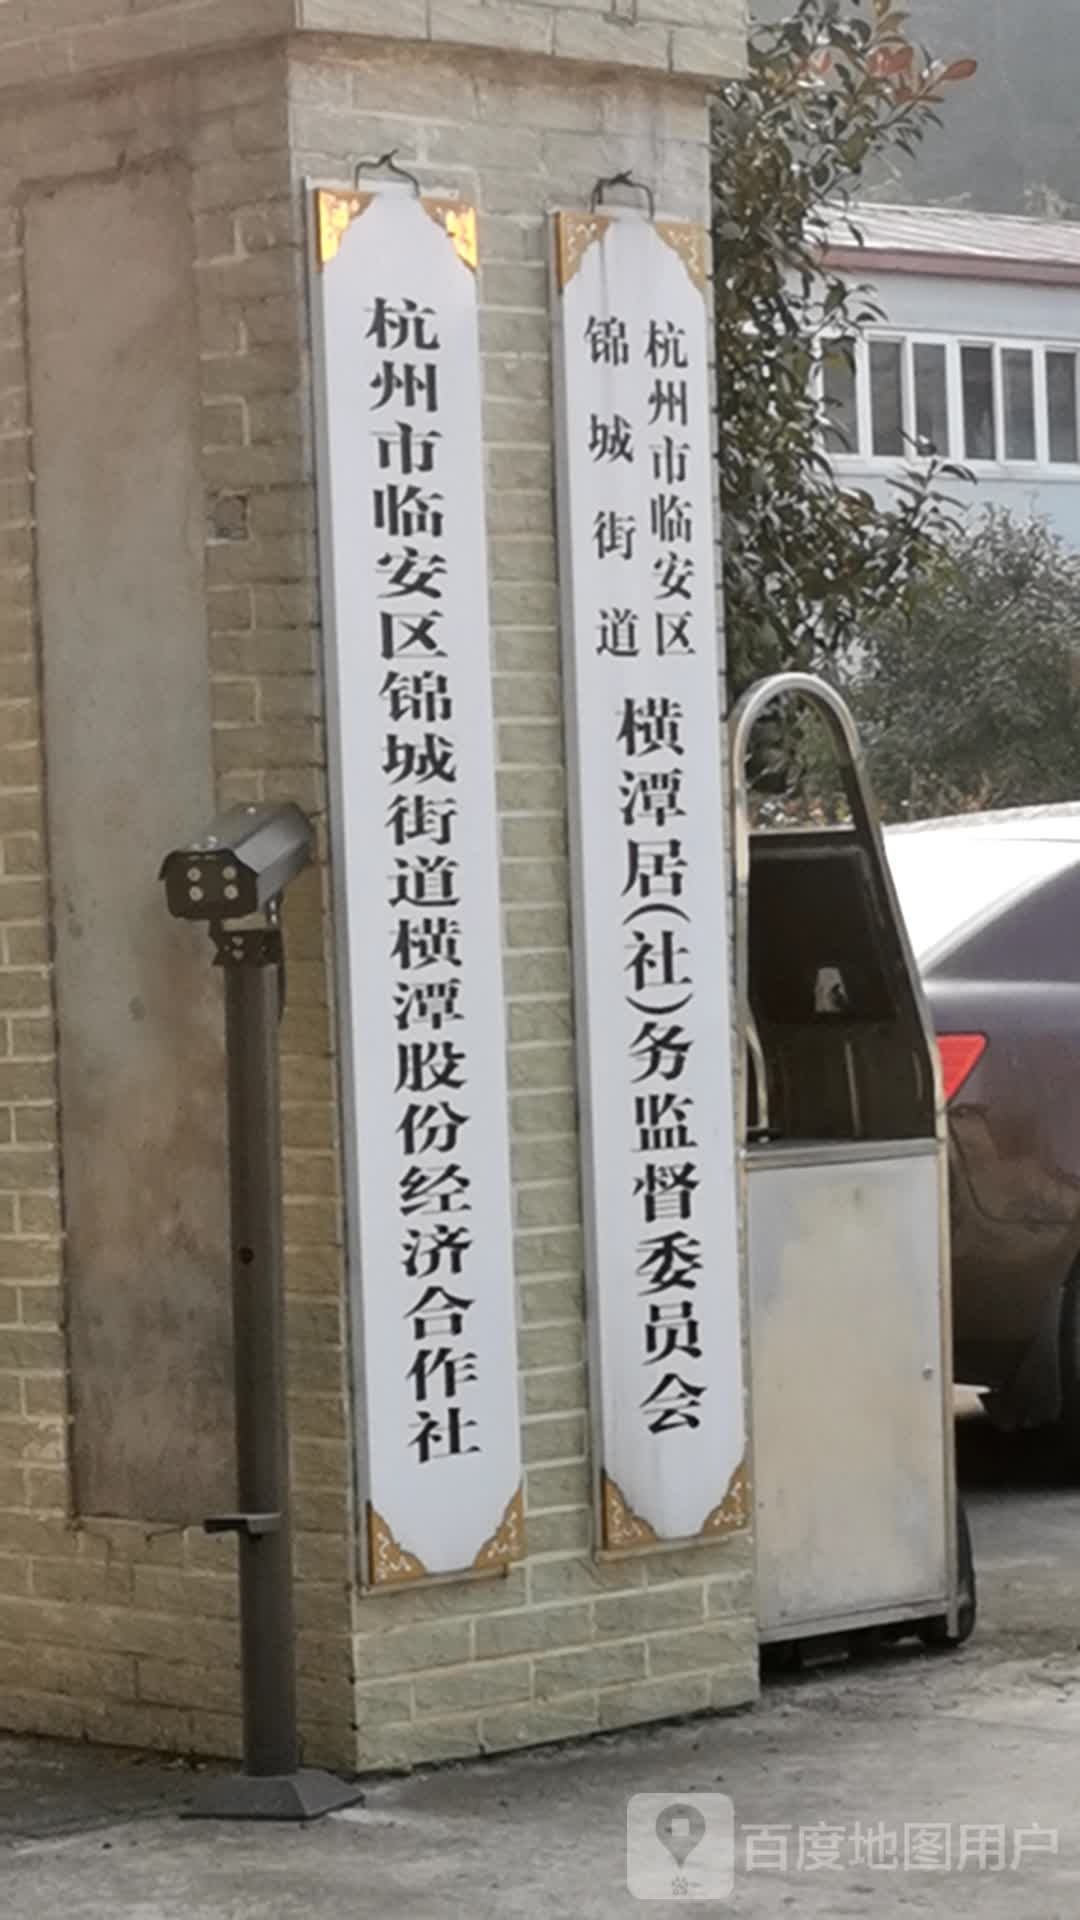 杭州市临安区锦城街道横潭股份经济合作社
杭州市临安区
锦城街道
横潭居(社)务监督委员会
百度地图用户